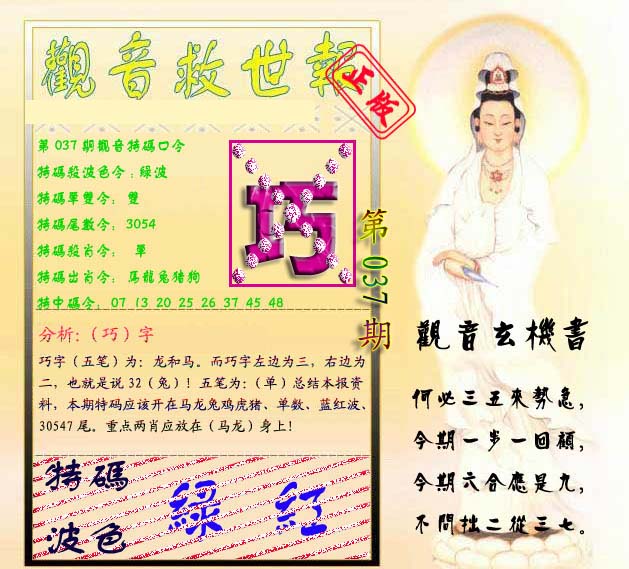 觀音救世報
正版
第037期觀音特碼口令
特碼殺波色令:綠波
特碼單雙令: 雙
特碼尾數令: 3054
特碼殺肖令: 單
特碼出肖令: 馬龍兔猪狗
特中碼令: 07 13 20 25 26 37 45 48
巧
第037期
分析:(巧)字
巧字(五笔)为:龙和马。而巧字左边为三,右边为
二,也就是说32(兔)!五笔为:(单)总结本报资
料,本期特码应该开在马龙兔鸡虎猪、单数、蓝红波、
30547尾。重点两肖应放在(马龙)身上!
特碼
波色
綠 紅
觀音玄機書
何必三五來勢急,
今期一步一回顧,
今期六合應是九,
不問拙二從三七。